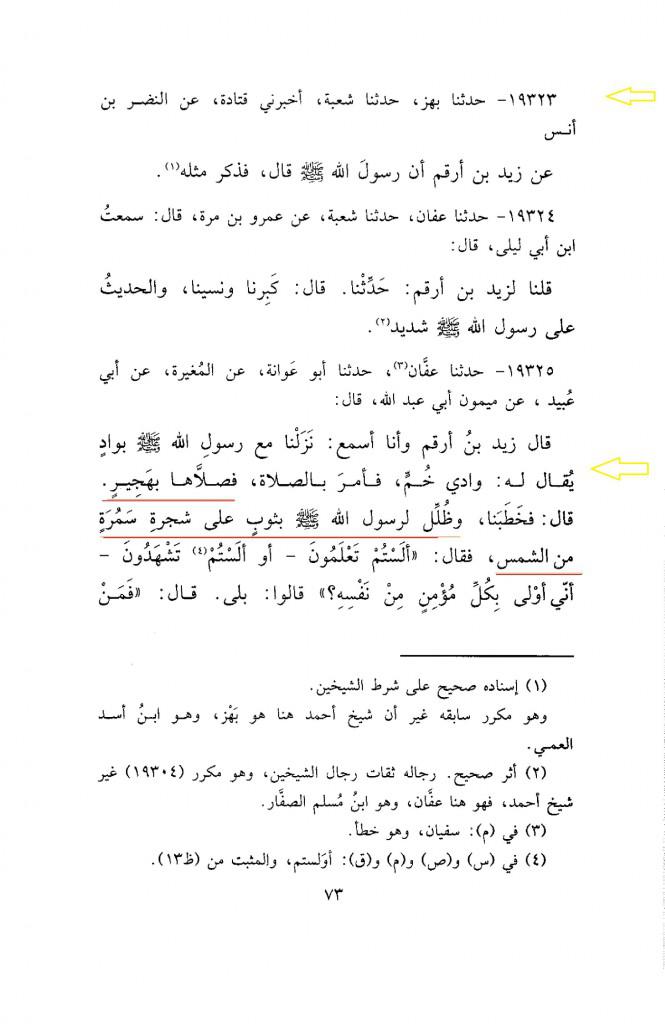 ١٩٣٢٣- حدثنا بهز، حدثنا شعبة، أخبرني قتادة، عن النضر بن
أنس
عن زيد بن أرقم أن رسولَ الله ﷺ قال، فذكر مثله(١).
١٩٣٢٤- حدثنا عفان، حدثنا شعبة، عن عمرو بن مرة، قال: سمعتُ
ابن أبي ليلى، قال:
قلنا لزيد بن أرقم: حَدِّثْنا. قال: كَبِرنا ونسينا، والحديثُ
على رسول الله ﷺ شديد(٢).
١٩٣٢٥- حدثنا عفَّان(٣)، حدثنا أبو عَوانة، عن المُغيرة، عن أبي
عُبيد ، عن ميمون أبي عبد الله، قال:
قال زيد بنُ أرقم وأنا أسمع: نَزَلْنا مع رسولِ الله ﷺ بوادٍ
يُقال له: وادي خُمٍّ، فأمرَ بالصلاة، فصلاَّها بهَجِيرٍ.
قال: فخَطَبَنا، وظُلِّل لرسول الله ﷺ بثوبٍ على شجرةِ سَمُرَةٍ
من الشمس، فقال: «ألَسْتُمْ تَعْلَمُونَ - أو ألَسْتُمْ(٤) تَشْهَدُونَ -
أنّي أوْلى بِكُلِّ مُؤْمِنٍ مِنْ نَفْسِهِ؟» قالوا: بلى. قال: «فَمَنْ
(١) إسناده صحيح على شرط الشيخين.
وهو مكرر سابقه غير أن شيخ أحمد هنا هو بَهْز، وهو ابنُ أسد
العمي.
(٢) أثر صحيح. رجاله ثقات رجال الشيخين، وهو مكرر (١٩٣٠٤) غير
شيخ أحمد، فهو هنا عفَّان، وهو ابنُ مُسلم الصفَّار.
(٣) في (م): سفيان، وهو خطأ.
(٤) في (س) و(ص) و(م) و(ق): أوَلستم، والمثبت من (ظ١٣).
٧٣